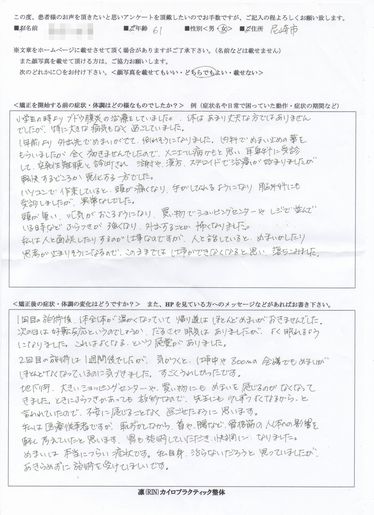 この度、患者様のお声を頂きたいと思いアンケートを頂戴したいのでお手数ですが、ご記入の程よろしくお願い致します。
お名前 ご年齢 61 性別 <男・女> ご住所 尼崎市
※文章をホームページに載せさせて頂く場合がありますがご了承下さい。(名前などは載せません)
また顔写真を載せて頂ける方は、ご協力お願いします。
次のどれかに○をお付け下さい。<顔写真を載せてもいい・どちらでもよい・載せない>
<矯正を開始する前の症状・体調はどの様なものでしたか？> 例(症状名や日常で困っていた動作・症状の期間など)
小学生の時よりブドウ膜炎の治療をしていましたが、体はあまり丈夫な方ではありません
でしたが、特に大きな病気もなく過ごしていました。
1年前より外出先でめまいがでて、倒れそうになりました。内科でめまい止めの薬を
もらいましたが全く効きませんでしたので、メニエール病かもと思い耳鼻科に受診
して
解決するどころか悪化する一方でした。
パソコンで作業していると、頭が痛くなり、手がしびれるようになり脳外科にも
受診しましたが、異常なしでした。
頭が重い、吐気がおこるようになり、買い物でショッピングセンターやレジで並んで
いる時などふらつきが強くなり、外出することが怖くなりました。
私は人と面談したりするのが仕事なのですが、人と話していると、めまいがしたり
思考が止まりそうになるので、このままでは仕事ができなくなると思い落ちこみました。
<矯正後の症状・体調の変化はどうですか？> また、HPを見ている方へのメッセージなどがあればお書き下さい。
1回目の施術後、体全体が温かくなっていて帰り道はほとんどめまいがおきませんでした。
次の日は好転反応というのでしょうか、だるさや眠気はありましたが、よく眠れるよう
になりました。これはよくなる、という感覚がありました。
2回目の施術は1週間後でしたが、気がつくと、仕事中や200mの会議でもめまいが
ほとんどなくなっているのに気づきました。すごくうれしかったです。
地下街、大きいショッピングセンターや、買い物にもめまいを感じるがなくなって
きました。ときどきふらつきがあっても
言われていたので、不安に感じることなく過ごせたように思います。
私は医療従事者ですが、恥ずかしながら、首や、腰など、骨格筋の人体への影響を
軽く考えていたと思います。
めまいは本当につらい症状です。私自身、治らないだろうと思っていましたが、
あきらめずに施術を受けてほしいです。
凛(RIN)カイロプラクティック整体